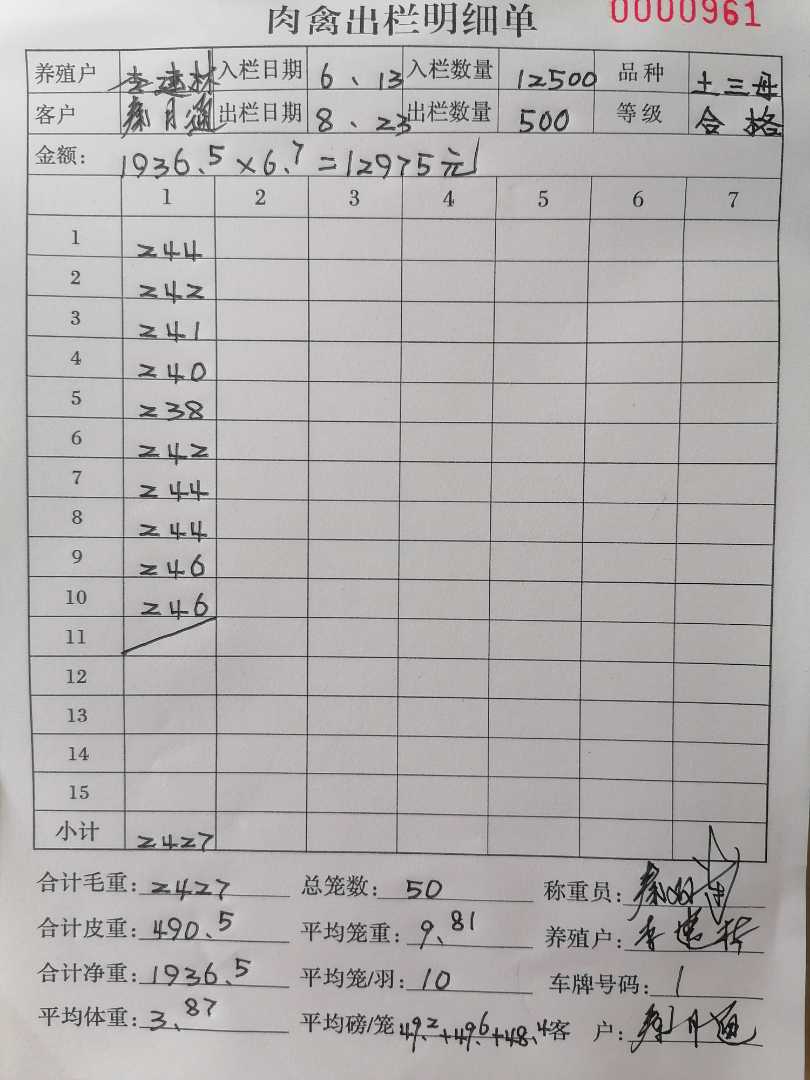 肉禽出栏明细单 0000961
养殖户 李建林 入栏日期 6、13 入栏数量 12500 品种 土三母
客户 秦月通 出栏日期 8、23 出栏数量 500 等级 合格
金额: 1936.5×6.7=12975元
1 2 3 4 5 6 7
1 244
2 242
3 241
4 240
5 238
6 242
7 244
8 244
9 246
10 246
11
12
13
14
15
小计 2427
合计毛重: 2427 总笼数: 50 称重员:
合计皮重: 490.5 平均笼重: 9.81 养殖户: 李建林
合计净重: 1936.5 平均笼/羽: 10 车牌号码: 1
平均体重: 3.87 平均磅/笼 49.2+49.6+48.4 客 户: 秦月通